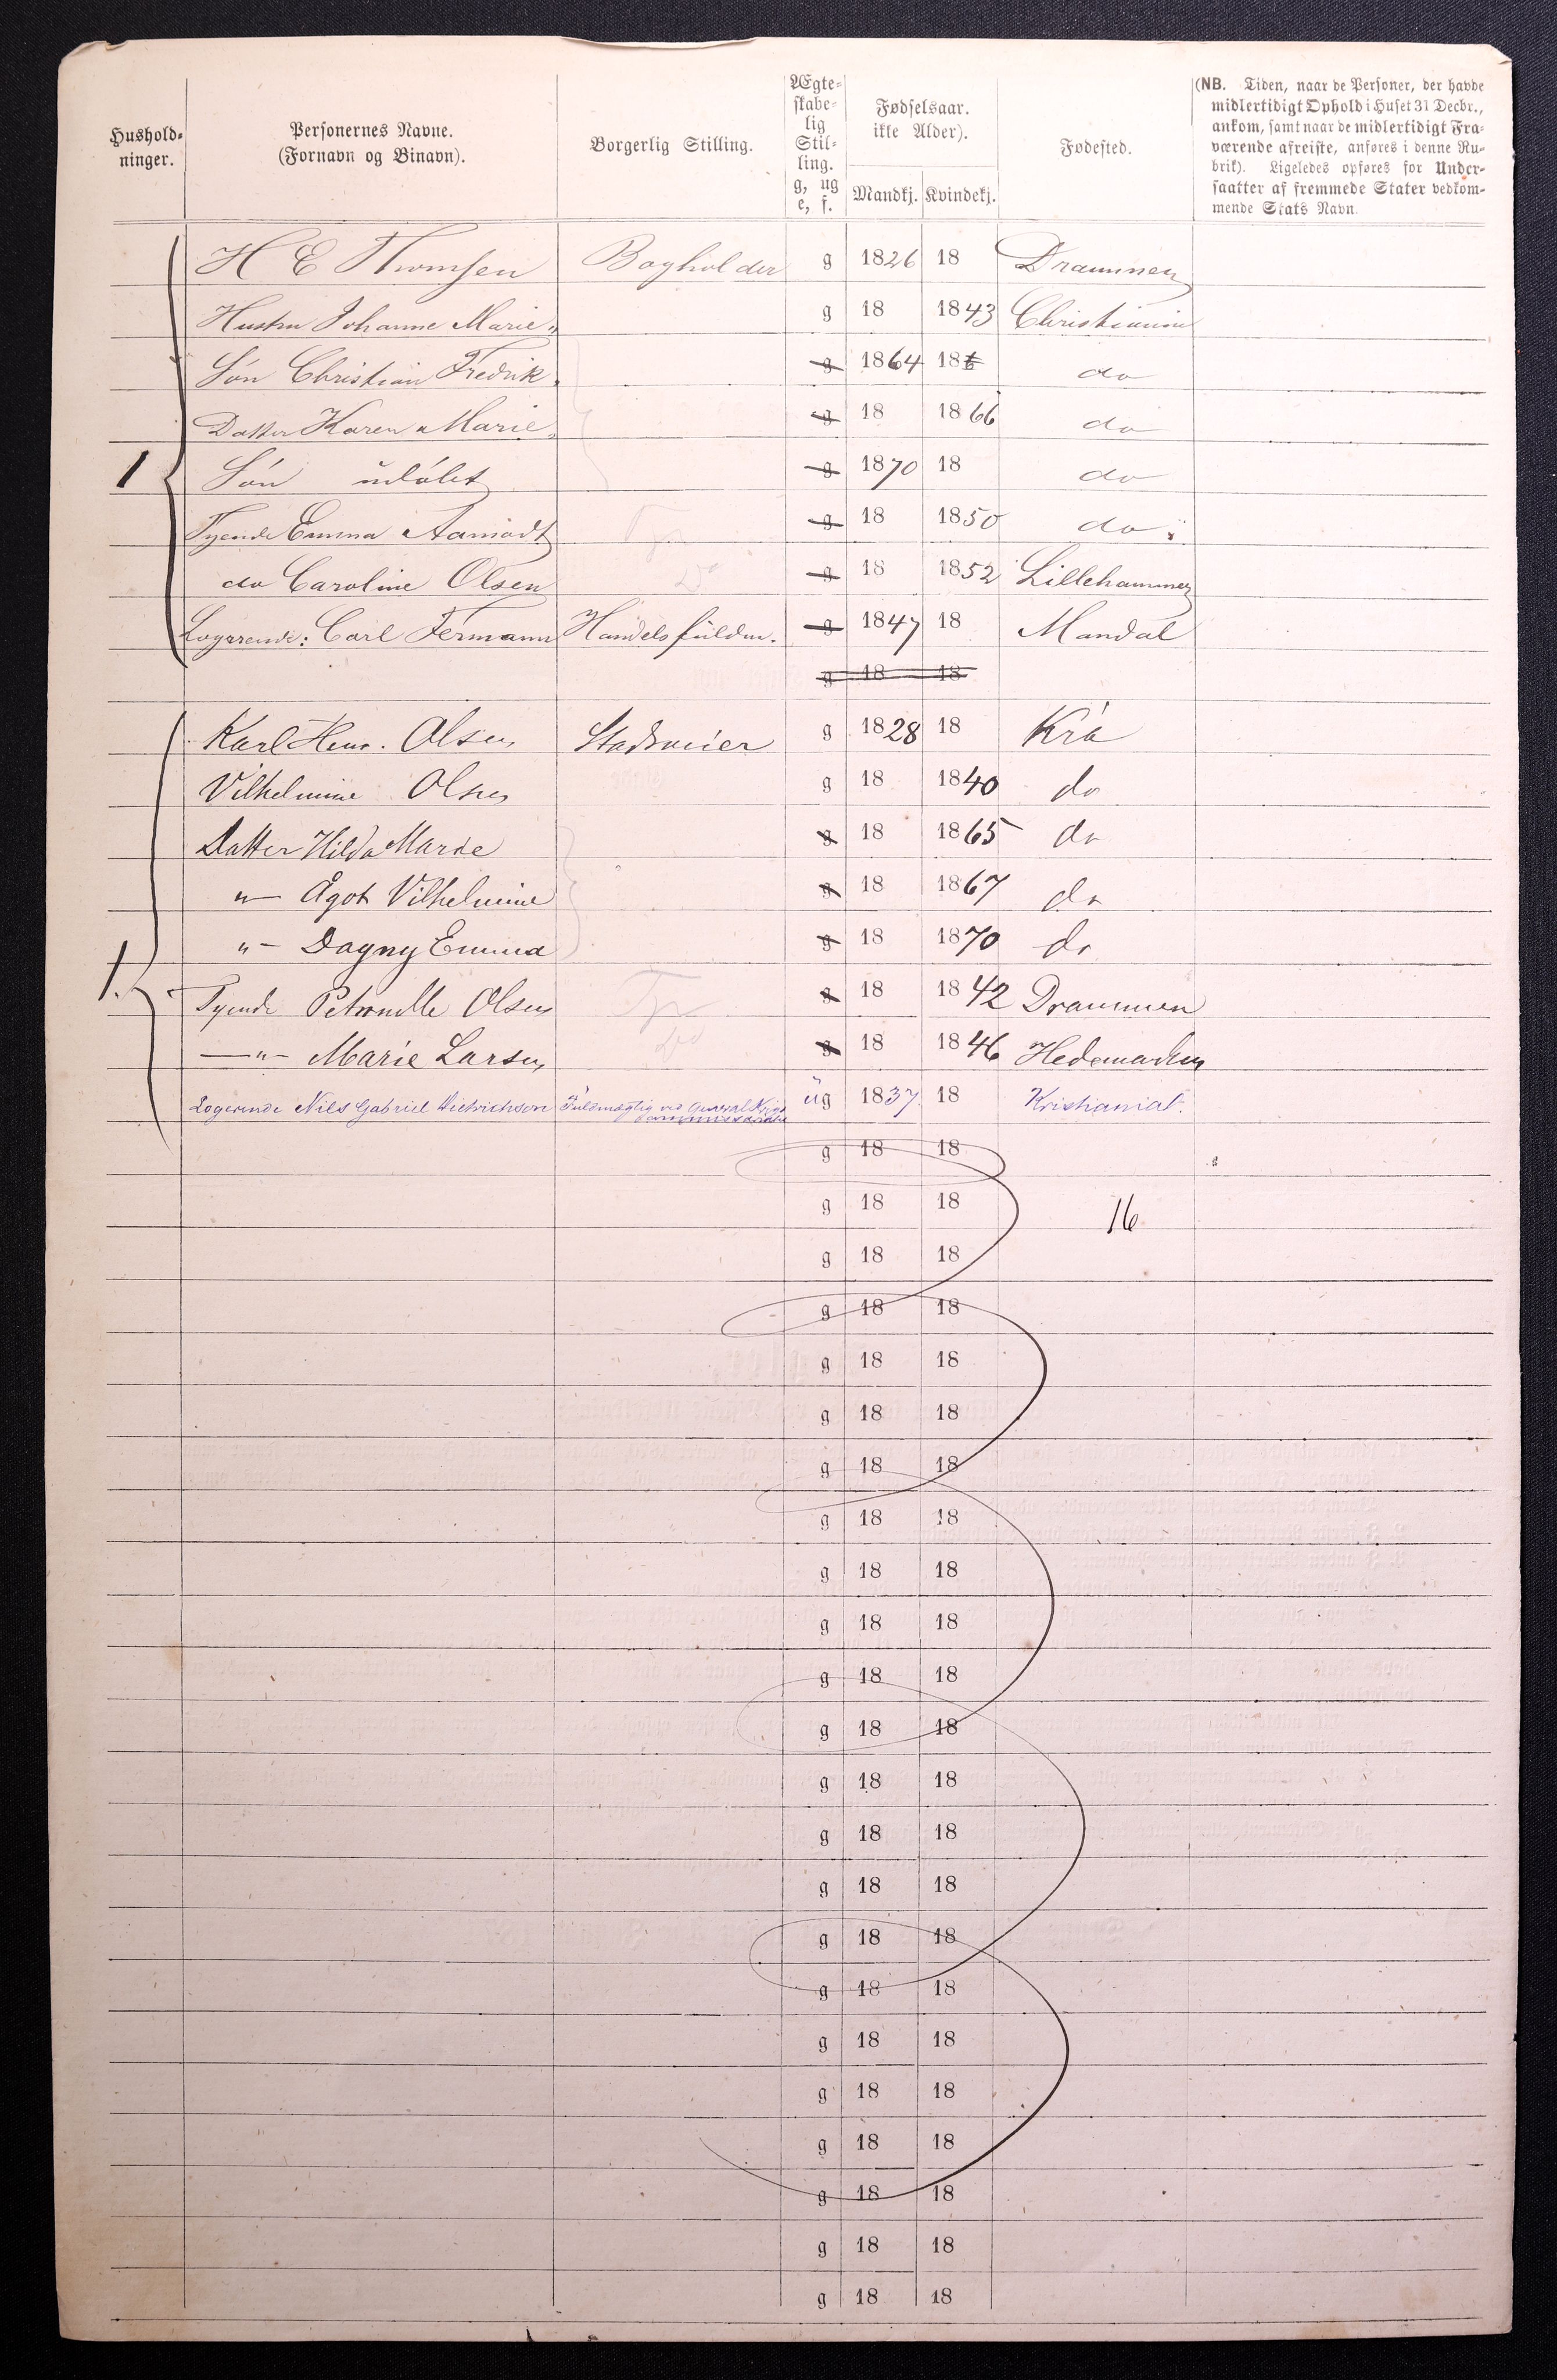 Hushold-
ninger.
Personernes Navne.
(Fornavn og Binavn).
Borgerlig Stilling.
Ægte-
skabe-
lig
Stil-
ling.
g, ug
e, f.
Fødselsaar.
ikke Alder).
Mandkj. Kvindekj.
Fødested.
(NB. Tiden, naar de Personer, der havde
midlertidigt Ophold i Huset 31 Decbr.,
ankom, samt naar de midlertidigt Fra-
værende afreiste, anføres i denne Ru-
brik). Ligeledes opføres for Under-
saatter af fremmede Stater vedkom-
mende Stats Navn.
H E Thomsen Bogholder g 1826 18 Drammen
Hustru Johanne Marie g 18 1843 Christiania
Søn Christian Fredrik g 1864 18 do
Datter Karen Marie g 18 1866 do
1 Søn udøbt g 1870 18 do
Tyende Emma Aamodt g 18 1850 do
do Caroline Olsen g 18 1852 Lillehammer
Logerende: Carl Fermann Handelsfuldm. g 1847 18 Mandal
g 18 18
Karl Henr. Olsen g 1828 18 Kra
Vilhelmine Olsen g 18 1840 do
Datter Hilda Marie g 18 1865 do
"– Agot Vilhelmine g 18 1867 do
1 "– Dagny Emma g 18 1870 do
Tyende Petronille Olsen g 18 1842 Drammen
–"– Marie Larsen g 18 1846 Hedemarken
Logerende Nils Gabriel Dietrichson Fuldmægtig ved General Krigs
commissariatet ug 1837 18 Kristiania
g 18 18
g 18 18 16
g 18 18
g 18 18
g 18 18
g 18 18
g 18 18
g 18 18
g 18 18
g 18 18
g 18 18
g 18 18
g 18 18
g 18 18
g 18 18
g 18 18
g 18 18
g 18 18
g 18 18
g 18 18
g 18 18
g 18 18
g 18 18